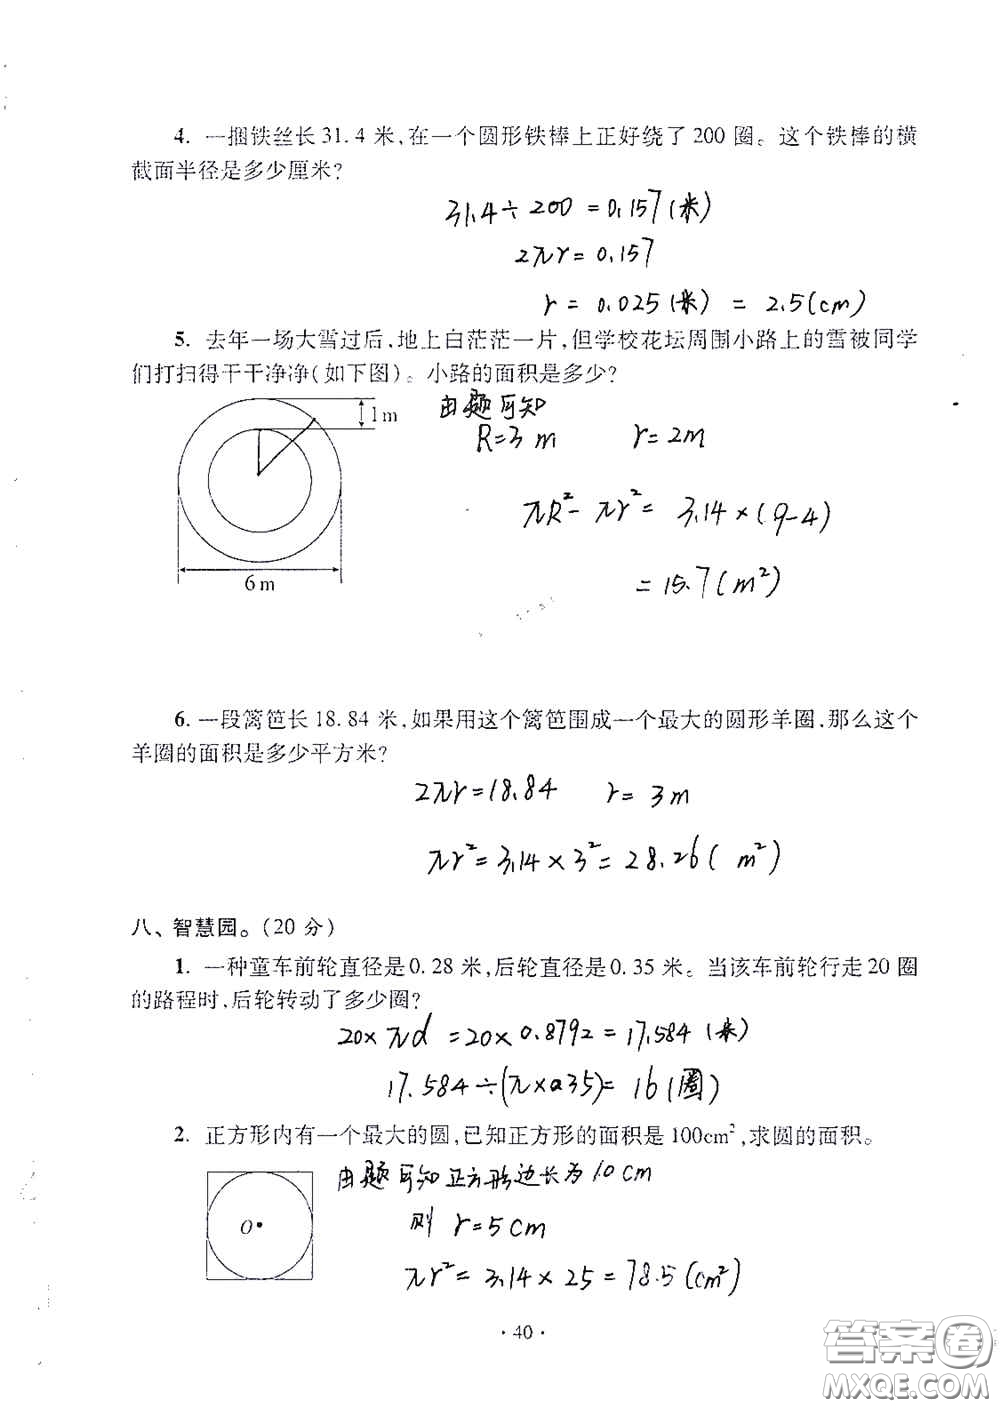 4. 一捆铁丝长31.4米,在一个圆形铁棒上正好绕了200圈。这个铁棒的横
截面半径是多少厘米?
31.4÷200=0.157(米)
2πr=0.157
r=0.025(米)=2.5(cm)
5. 去年一场大雪过后,地上白茫茫一片,但学校花坛周围小路上的雪被同学
们打扫得干干净净(如下图)。小路的面积是多少?
1m
6m
由题可知
R=3m r=2m
πR²-πr²=3.14×(9-4)
=15.7(m²)
6. 一段篱笆长18.84米,如果用这个篱笆围成一个最大的圆形羊圈,那么这个
羊圈的面积是多少平方米?
2πr=18.84 r=3m
πr²=3.14×3²=28.26(m²)
八、智慧园。(20分)
1. 一种童车前轮直径是0.28米,后轮直径是0.35米。当该车前轮行走20圈
的路程时,后轮转动了多少圈?
20×πd=20×0.8792=17.584(米)
17.584÷(π×0.35)=16(圈)
2. 正方形内有一个最大的圆,已知正方形的面积是100cm²,求圆的面积。
O
由题可知正方形边长为10cm
则 r=5cm
πr²=3.14×25=78.5(cm²)
·40·
答案圈
MXQE.COM